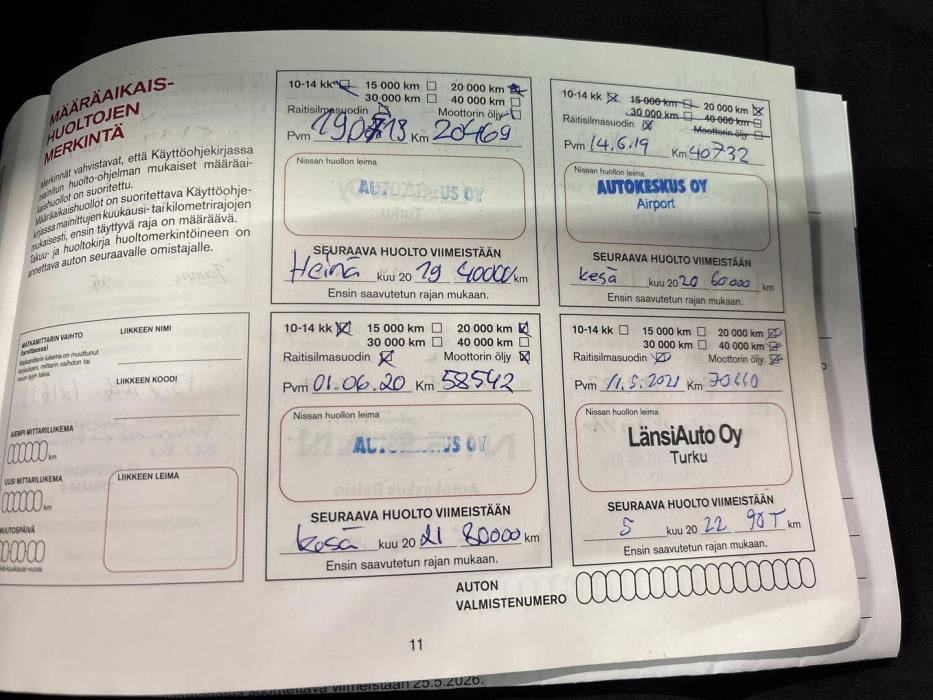 MÄÄRÄAIKAIS-
HUOLTOJEN
MERKINTÄ
Merkinnät vahvistavat, että Käyttöohjekirjassa
mainitun huolto-ohjelman mukaiset määräai-
kaishuollot on suoritettu.
Määräaikaishuollot on suoritettava Käyttöohje-
kirjassa mainittujen kuukausi- tai kilometrirajojen
mukaisesti, ensin täyttyvä raja on määräävä.
Takuu- ja huoltokirja huoltomerkintöineen on
annettava auton seuraavalle omistajalle.
MATKAMITTARIN VAIHTO
(tarvittaessa)
Matkamittarin lukema on muuttunut
korjauksen, mittarin vaihdon tai
muun syyn takia.
LIIKKEEN NIMI
LIIKKEEN KOODI
AIEMPI MITTARILUKEMA
km
UUSI MITTARILUKEMA
km
MUUTOSPÄIVÄ
LIIKKEEN LEIMA
10-14 kk 15 000 km 20 000 km
30 000 km 40 000 km
Raitisilmasuodin Moottorin öljy
Pvm Km 20469
Nissan huollon leima
SEURAAVA HUOLTO VIIMEISTÄÄN
Heinä kuu 20 19 40000 km
Ensin saavutetun rajan mukaan.
10-14 kk 15 000 km 20 000 km
30 000 km 40 000 km
Raitisilmasuodin Moottorin öljy
Pvm 14.6.19 Km 40732
Nissan huollon leima
AUTOKESKUS OY
Airport
SEURAAVA HUOLTO VIIMEISTÄÄN
kesä kuu 20 20 60000 km
Ensin saavutetun rajan mukaan.
10-14 kk 15 000 km 20 000 km
30 000 km 40 000 km
Raitisilmasuodin Moottorin öljy
Pvm 01.06.20 Km 58542
Nissan huollon leima
SEURAAVA HUOLTO VIIMEISTÄÄN
kesä kuu 20 21 80000 km
Ensin saavutetun rajan mukaan.
10-14 kk 15 000 km 20 000 km
30 000 km 40 000 km
Raitisilmasuodin Moottorin öljy
Pvm 11.5.2021 Km
Nissan huollon leima
LänsiAuto Oy
Turku
SEURAAVA HUOLTO VIIMEISTÄÄN
5 kuu 20 22 90T km
Ensin saavutetun rajan mukaan.
AUTON
VALMISTENUMERO
11
viimeistään 25.5.2026.